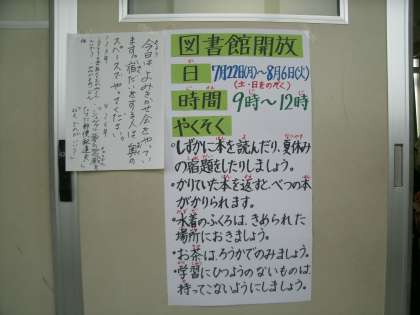 図書館開放
日 7月22日(月)~8月6日(火)
(土・日をのぞく)
時間 9時~12時
やくそく
・しずかに本を読んだり、夏休み
の宿題をしたりしましょう。
・かりていた本を返すと、べつの本
がかりられます。
・水着のふくろは、きめられた
場所におきましょう。
・お茶は、ろうかでのみましょう。
・学習にひつようのないものは、
持ってこないようにしましょう。
今日はよみきかせ会をやってい
ます。宿だいをする人は、奥の
スペースでやってください。